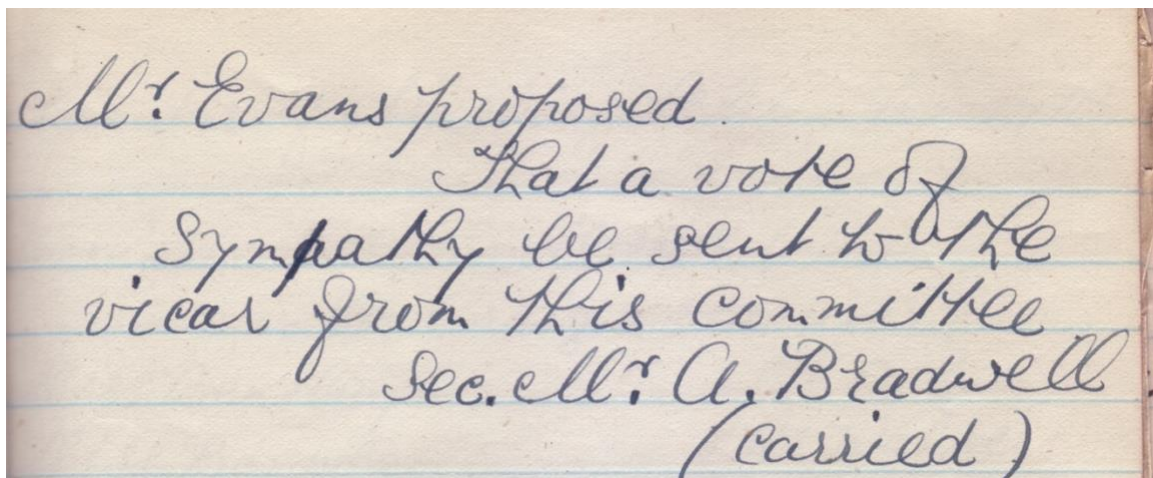 Mr. Evans proposed.
That a vote of
Sympathy be sent to the
vicar from this committee
Sec. Mr. A. Bradwell
(carried)